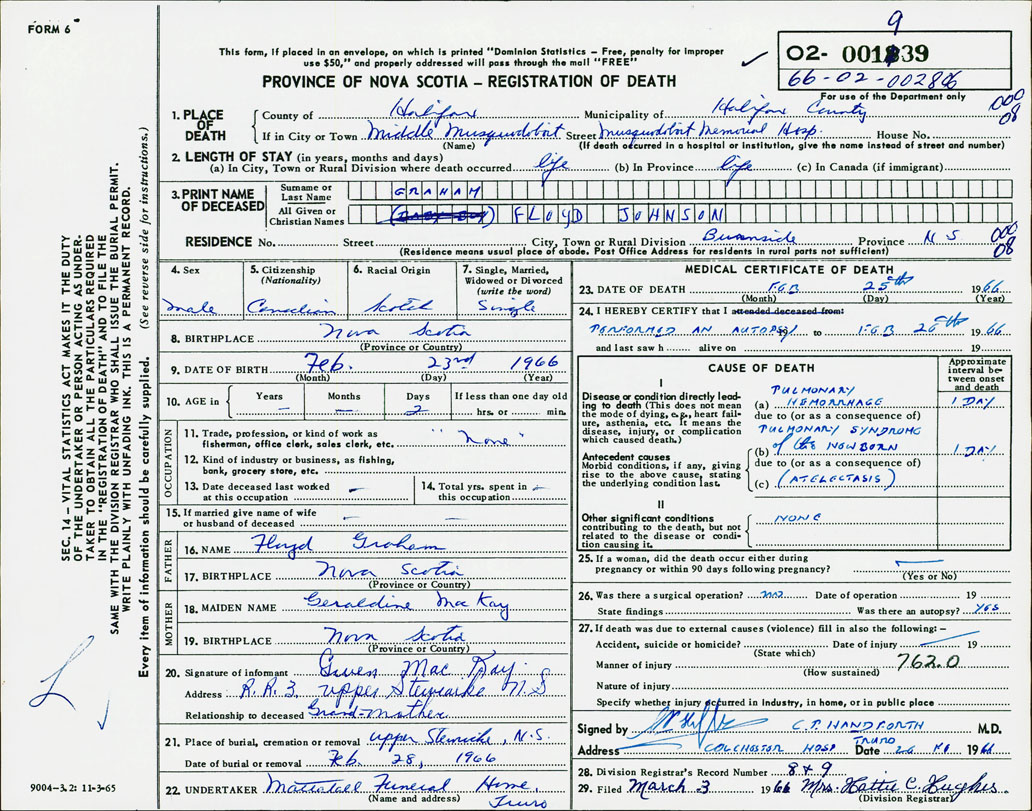 FORM 6
This form, if placed in an envelope, on which is printed "Dominion Statistics – Free, penalty for improper
use $50," and properly addressed will pass through the mail "FREE"
PROVINCE OF NOVA SCOTIA – REGISTRATION OF DEATH
9
02- 001839
66-02-002806
For use of the Department only
000
08
1. PLACE OF DEATH
County of Halifax Municipality of Halifax County
If in City or Town Middle Musquodobit Street Musquodobit Memorial Hosp. House No.
(Name) (If death occurred in a hospital or institution, give the name instead of street and number)
2. LENGTH OF STAY (in years, months and days)
(a) In City, Town or Rural Division where death occurred life (b) In Province life (c) In Canada (if immigrant)
3. PRINT NAME OF DECEASED
Surname or Last Name GRAHAM
All Given or Christian Names (BABY BOY) FLOYD JOHNSON
RESIDENCE No. Street City, Town or Rural Division Burnside Province N S
000
08
(Residence means usual place of abode. Post Office Address for residents in rural parts not sufficient)
4. Sex
male
5. Citizenship
(Nationality)
Canadian
6. Racial Origin
Scotch
7. Single, Married,
Widowed or Divorced
(write the word)
Single
8. BIRTHPLACE Nova Scotia
(Province or Country)
9. DATE OF BIRTH Feb. 23rd 1966
(Month) (Day) (Year)
10. AGE in
Years –
Months –
Days 2
If less than one day old
hrs. or min.
OCCUPATION
11. Trade, profession, or kind of work as
fisherman, office clerk, sales clerk, etc. "None"
12. Kind of industry or business, as fishing,
bank, grocery store, etc.
13. Date deceased last worked
at this occupation –
14. Total yrs. spent in
this occupation –
15. If married give name of wife
or husband of deceased – –
FATHER
16. NAME Floyd Graham
17. BIRTHPLACE Nova Scotia
(Province or Country)
MOTHER
18. MAIDEN NAME Geraldine MacKay
19. BIRTHPLACE Nova Scotia
(Province or Country)
20. Signature of informant Gwen MacKay
Address R.R.3. Upper Stewiacke N.S
Relationship to deceased Grand-Mother
21. Place of burial, cremation or removal Upper Stewiacke, N.S.
Date of burial or removal Feb. 28, 1966
22. UNDERTAKER Mattatall Funeral Home,
(Name and address) Truro
MEDICAL CERTIFICATE OF DEATH
23. DATE OF DEATH FEB 25th 1966
(Month) (Day) (Year)
24. I HEREBY CERTIFY that I attended deceased from:
PERFORMED AN AUTOPSY 19 to FEB 26th 1966
and last saw h alive on 19
CAUSE OF DEATH
Approximate
interval be-
tween onset
and death
I
Disease or condition directly lead-
ing to death (This does not mean
the mode of dying, e.g., heart fail-
ure, asthenia, etc. It means the
disease, injury, or complication
which caused death.)
PULMONARY
(a) HEMORRHAGE 1 DAY
due to (or as a consequence of)
PULMONARY SYNDROME
(b) of the NEWBORN 1 DAY
due to (or as a consequence of)
(c) (ATELECTASIS)
Antecedent causes
Morbid conditions, if any, giving
rise to the above cause, stating
the underlying condition last.
II
Other significant conditions
contributing to the death, but not
related to the disease or condi-
tion causing it.
NONE
25. If a woman, did the death occur either during
pregnancy or within 90 days following pregnancy? –
(Yes or No)
26. Was there a surgical operation? no Date of operation 19
State findings Was there an autopsy? YES
27. If death was due to external causes (violence) fill in also the following: –
Accident, suicide or homicide? Date of injury 19
(State which)
Manner of injury 762.0
(How sustained)
Nature of injury
Specify whether injury occurred in industry, in home, or in public place
Signed by C.P. HANDFORTH M.D.
Address COLCHESTER HOSP TRURO Date 26 1966
28. Division Registrar's Record Number 8 & 9
29. Filed March 3 1966 Mrs. Hattie C. Hughes
(Division Registrar)
SEC. 14 – VITAL STATISTICS ACT MAKES IT THE DUTY
OF THE UNDERTAKER OR PERSON ACTING AS UNDER-
TAKER TO OBTAIN ALL THE PARTICULARS REQUIRED
IN THE "REGISTRATION OF DEATH" AND TO FILE THE
SAME WITH THE DIVISION REGISTRAR WHO SHALL ISSUE THE BURIAL PERMIT.
WRITE PLAINLY WITH UNFADING INK. THIS IS A PERMANENT RECORD.
Every item of information should be carefully supplied. (See reverse side for instructions.)
9004-3.2: 11-3-65